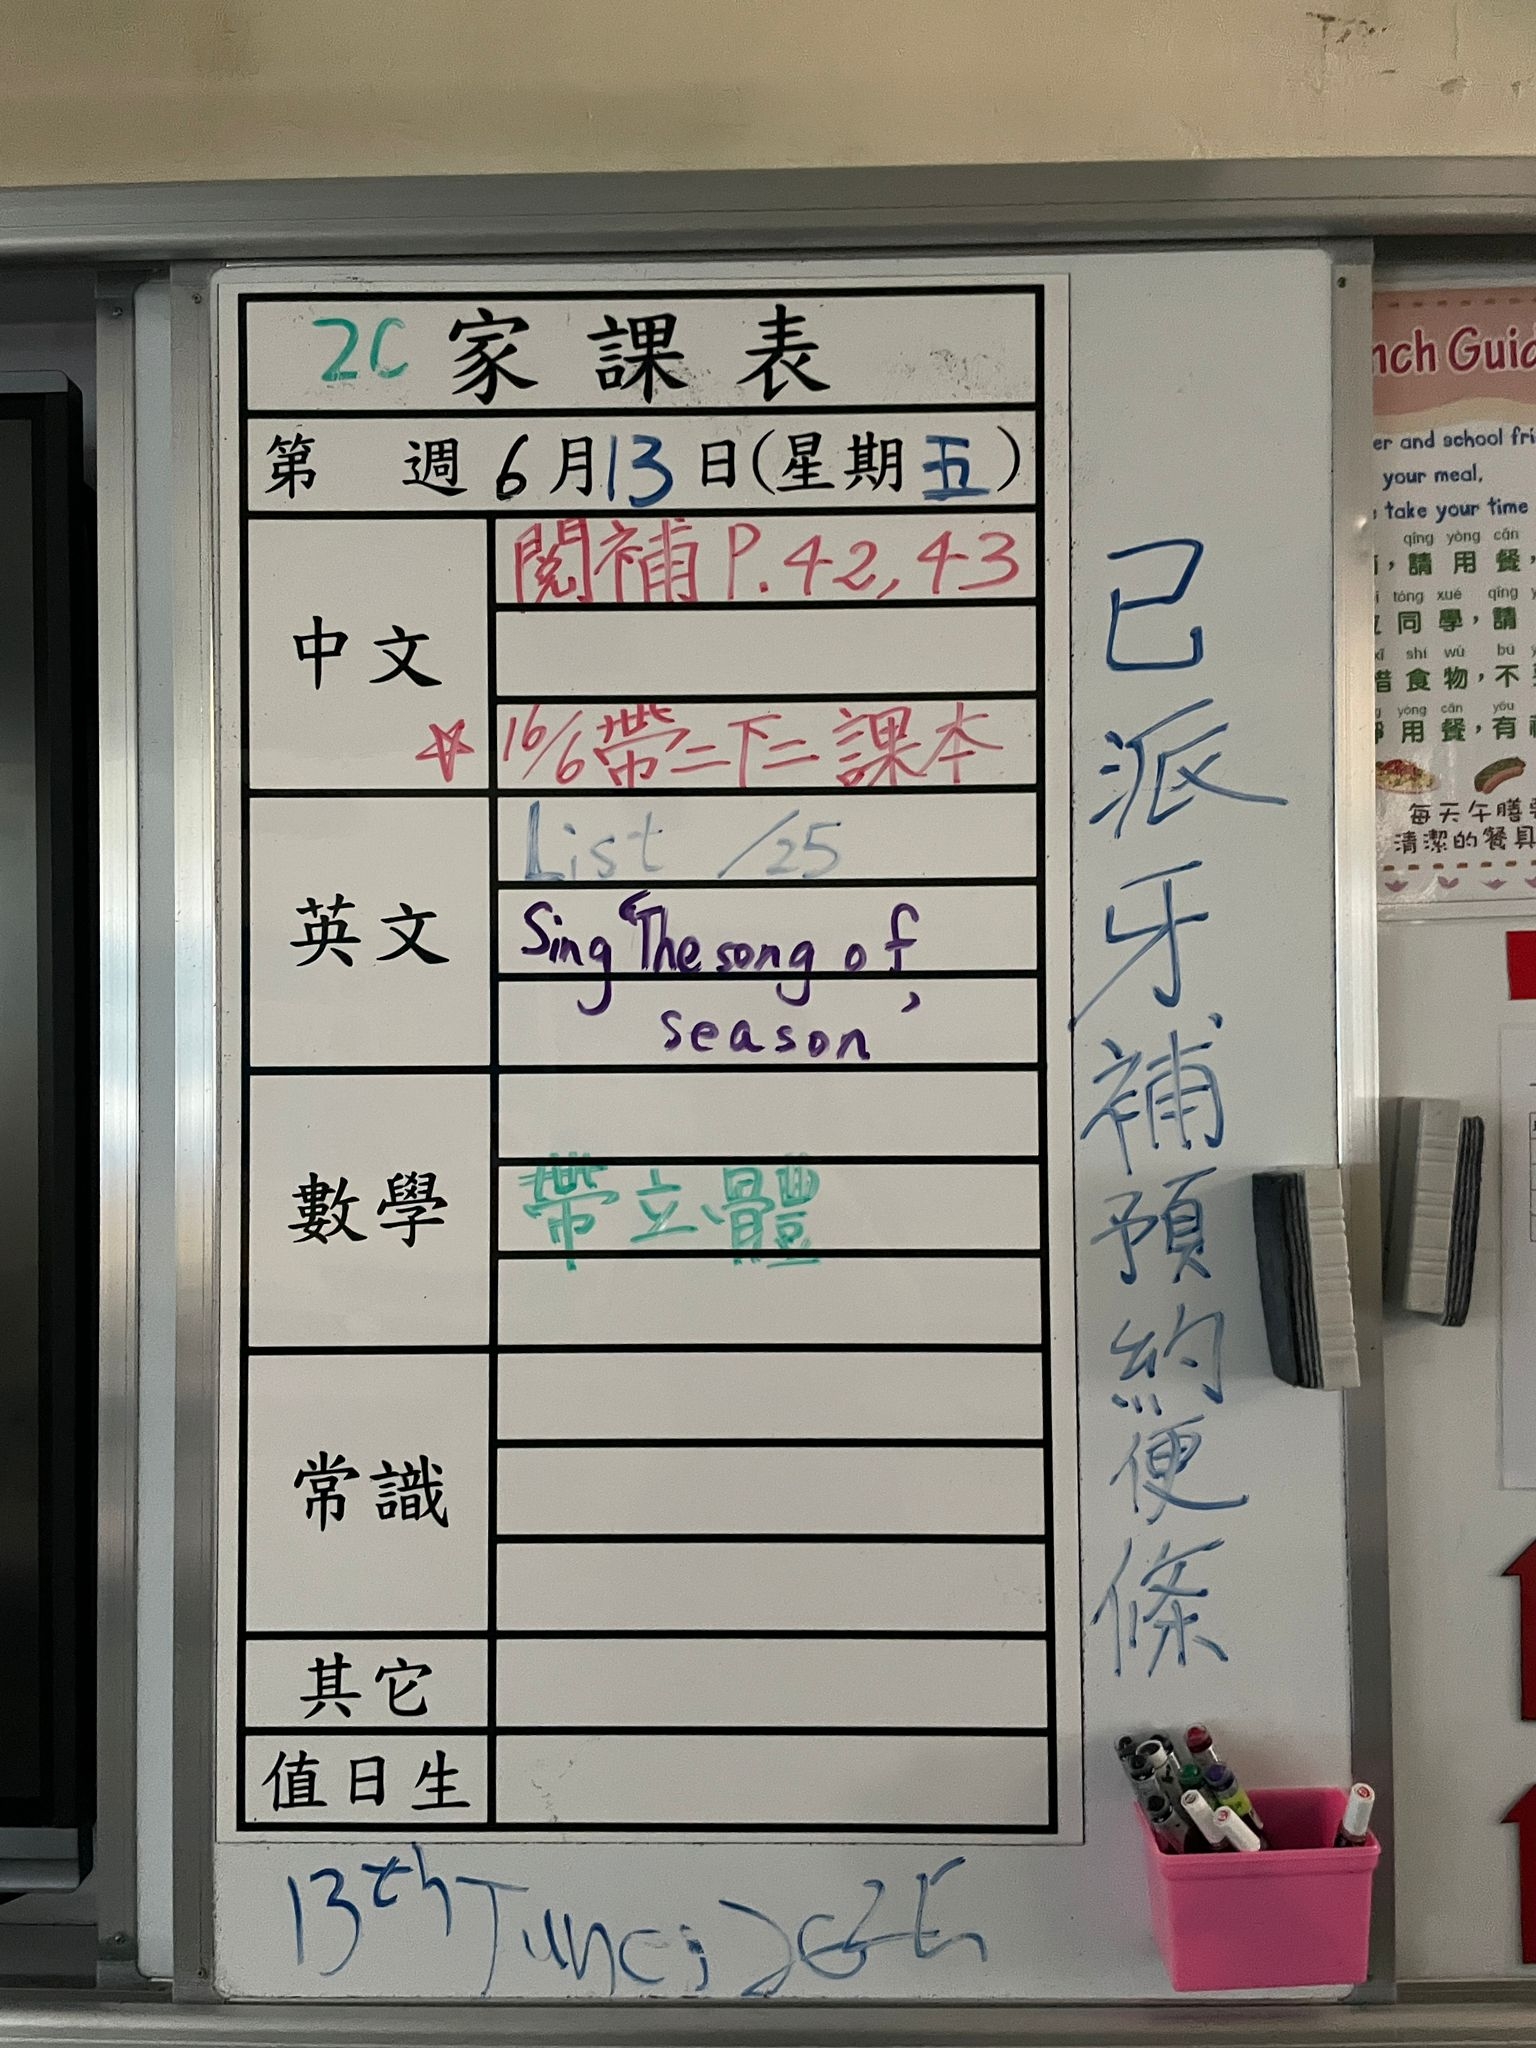 2C 家課表
第 週 6月13日(星期五)
中文
閱補 P. 42, 43
☆ 16/6 帶二下二課本
英文
List /25
Sing 'The song of
season'
數學
帶立體
常識
其它
值日生
已派牙補預約便條
13th June, 2025
nch Guid
er and school fri
your meal,
take your time
qǐng yòng cān
，請用餐，
tóng xué qǐng y
同學，請
xī shí wù bú
惜食物，不
yòng cān yǒu
用餐，有
每天午膳
清潔的餐具